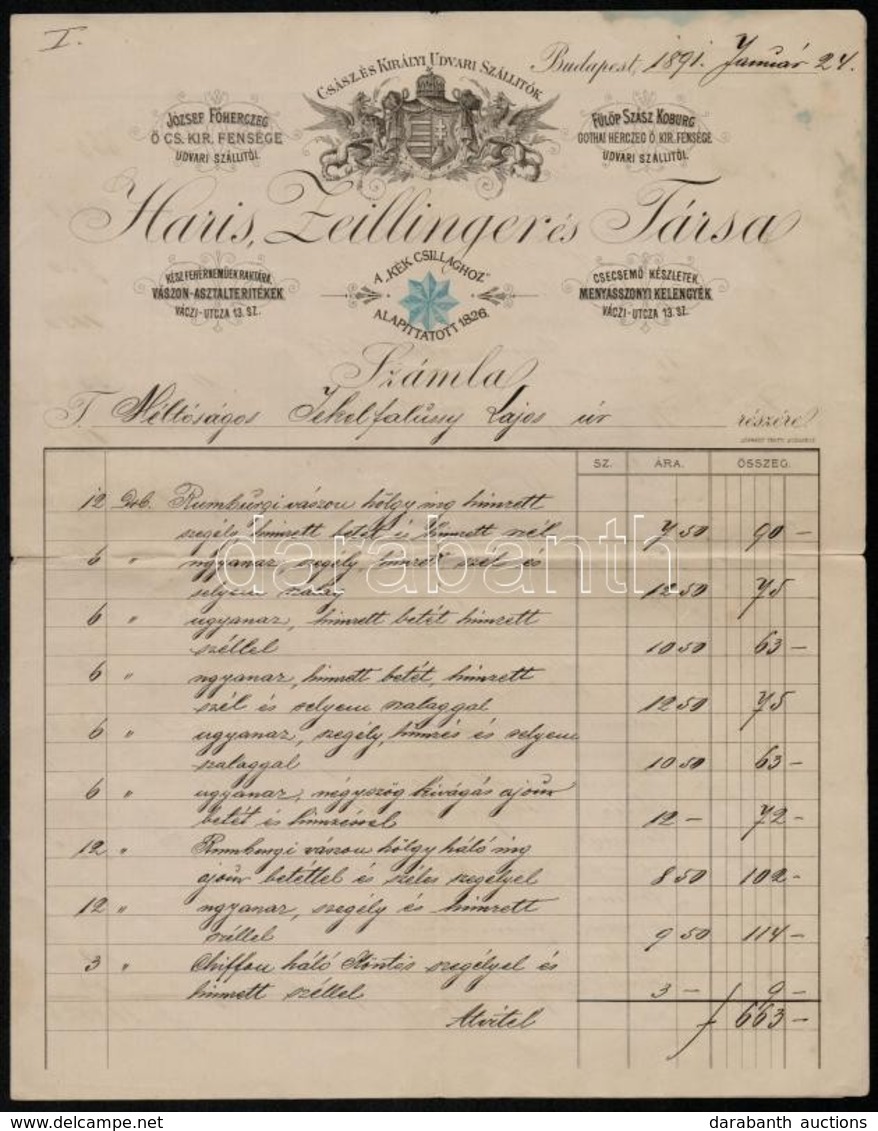 I.
Budapest, 1891. Január 24.
CSÁSZ. ÉS KIRÁLYI UDVARI SZÁLLITÓK
JÓZSEF FŐHERCZEG
Ő CS. KIR. FENSÉGE
UDVARI SZÁLLITÓI.
FÜLÖP SZÁSZ KOBURG
GOTHAI HERCZEG Ő. KIR. FENSÉGE
UDVARI SZÁLLITÓI.
Haris, Zeillinger és Társa
KÉSZ FEHÉRNEMÜEK RAKTÁRA.
VÁSZON-ASZTALTERITÉKEK
VÁCZI-UTCZA 13. SZ.
A „KÉK CSILLAGHOZ”
ALAPITTATOTT 1826.
CSECSEMŐ KÉSZLETEK.
MENYASSZONYI KELENGYÉK
VÁCZI-UTCZA 13. SZ.
Számla
T. Méltóságos Jekelfalussy Lajos úr részére
SZ. ÁRA. ÖSSZEG.
12 Drb. Rumburgi vászon hölgy ing himzett
szegély himzett betét és himzett szél 7 50 90 —
6 " ugyanaz, szegély, himzett szél és
selyem szalag 12 50 75
6 " ugyanaz, himzett betét himzett
széllel 10 50 63 —
6 " ugyanaz, himzett betét, himzett
szél és selyem szalaggal 12 50 75
6 " ugyanaz, szegély, himzés és selyem
szalaggal 10 50 63 —
6 " ugyanaz, négyszög kivágás ajour
betét és himzéssel 12 — 72 —
12 " Rumburgi vászon hölgy háló ing
ajour betéttel és széles szegélyel 8 50 102 —
12 " ugyanaz, szegély és himzett
széllel 9 50 114 —
3 " Chiffon háló Köntös szegélyel és
himzett széllel 3 — 9 —
Átvitel f 663 —
darabanth
darabanth auctions